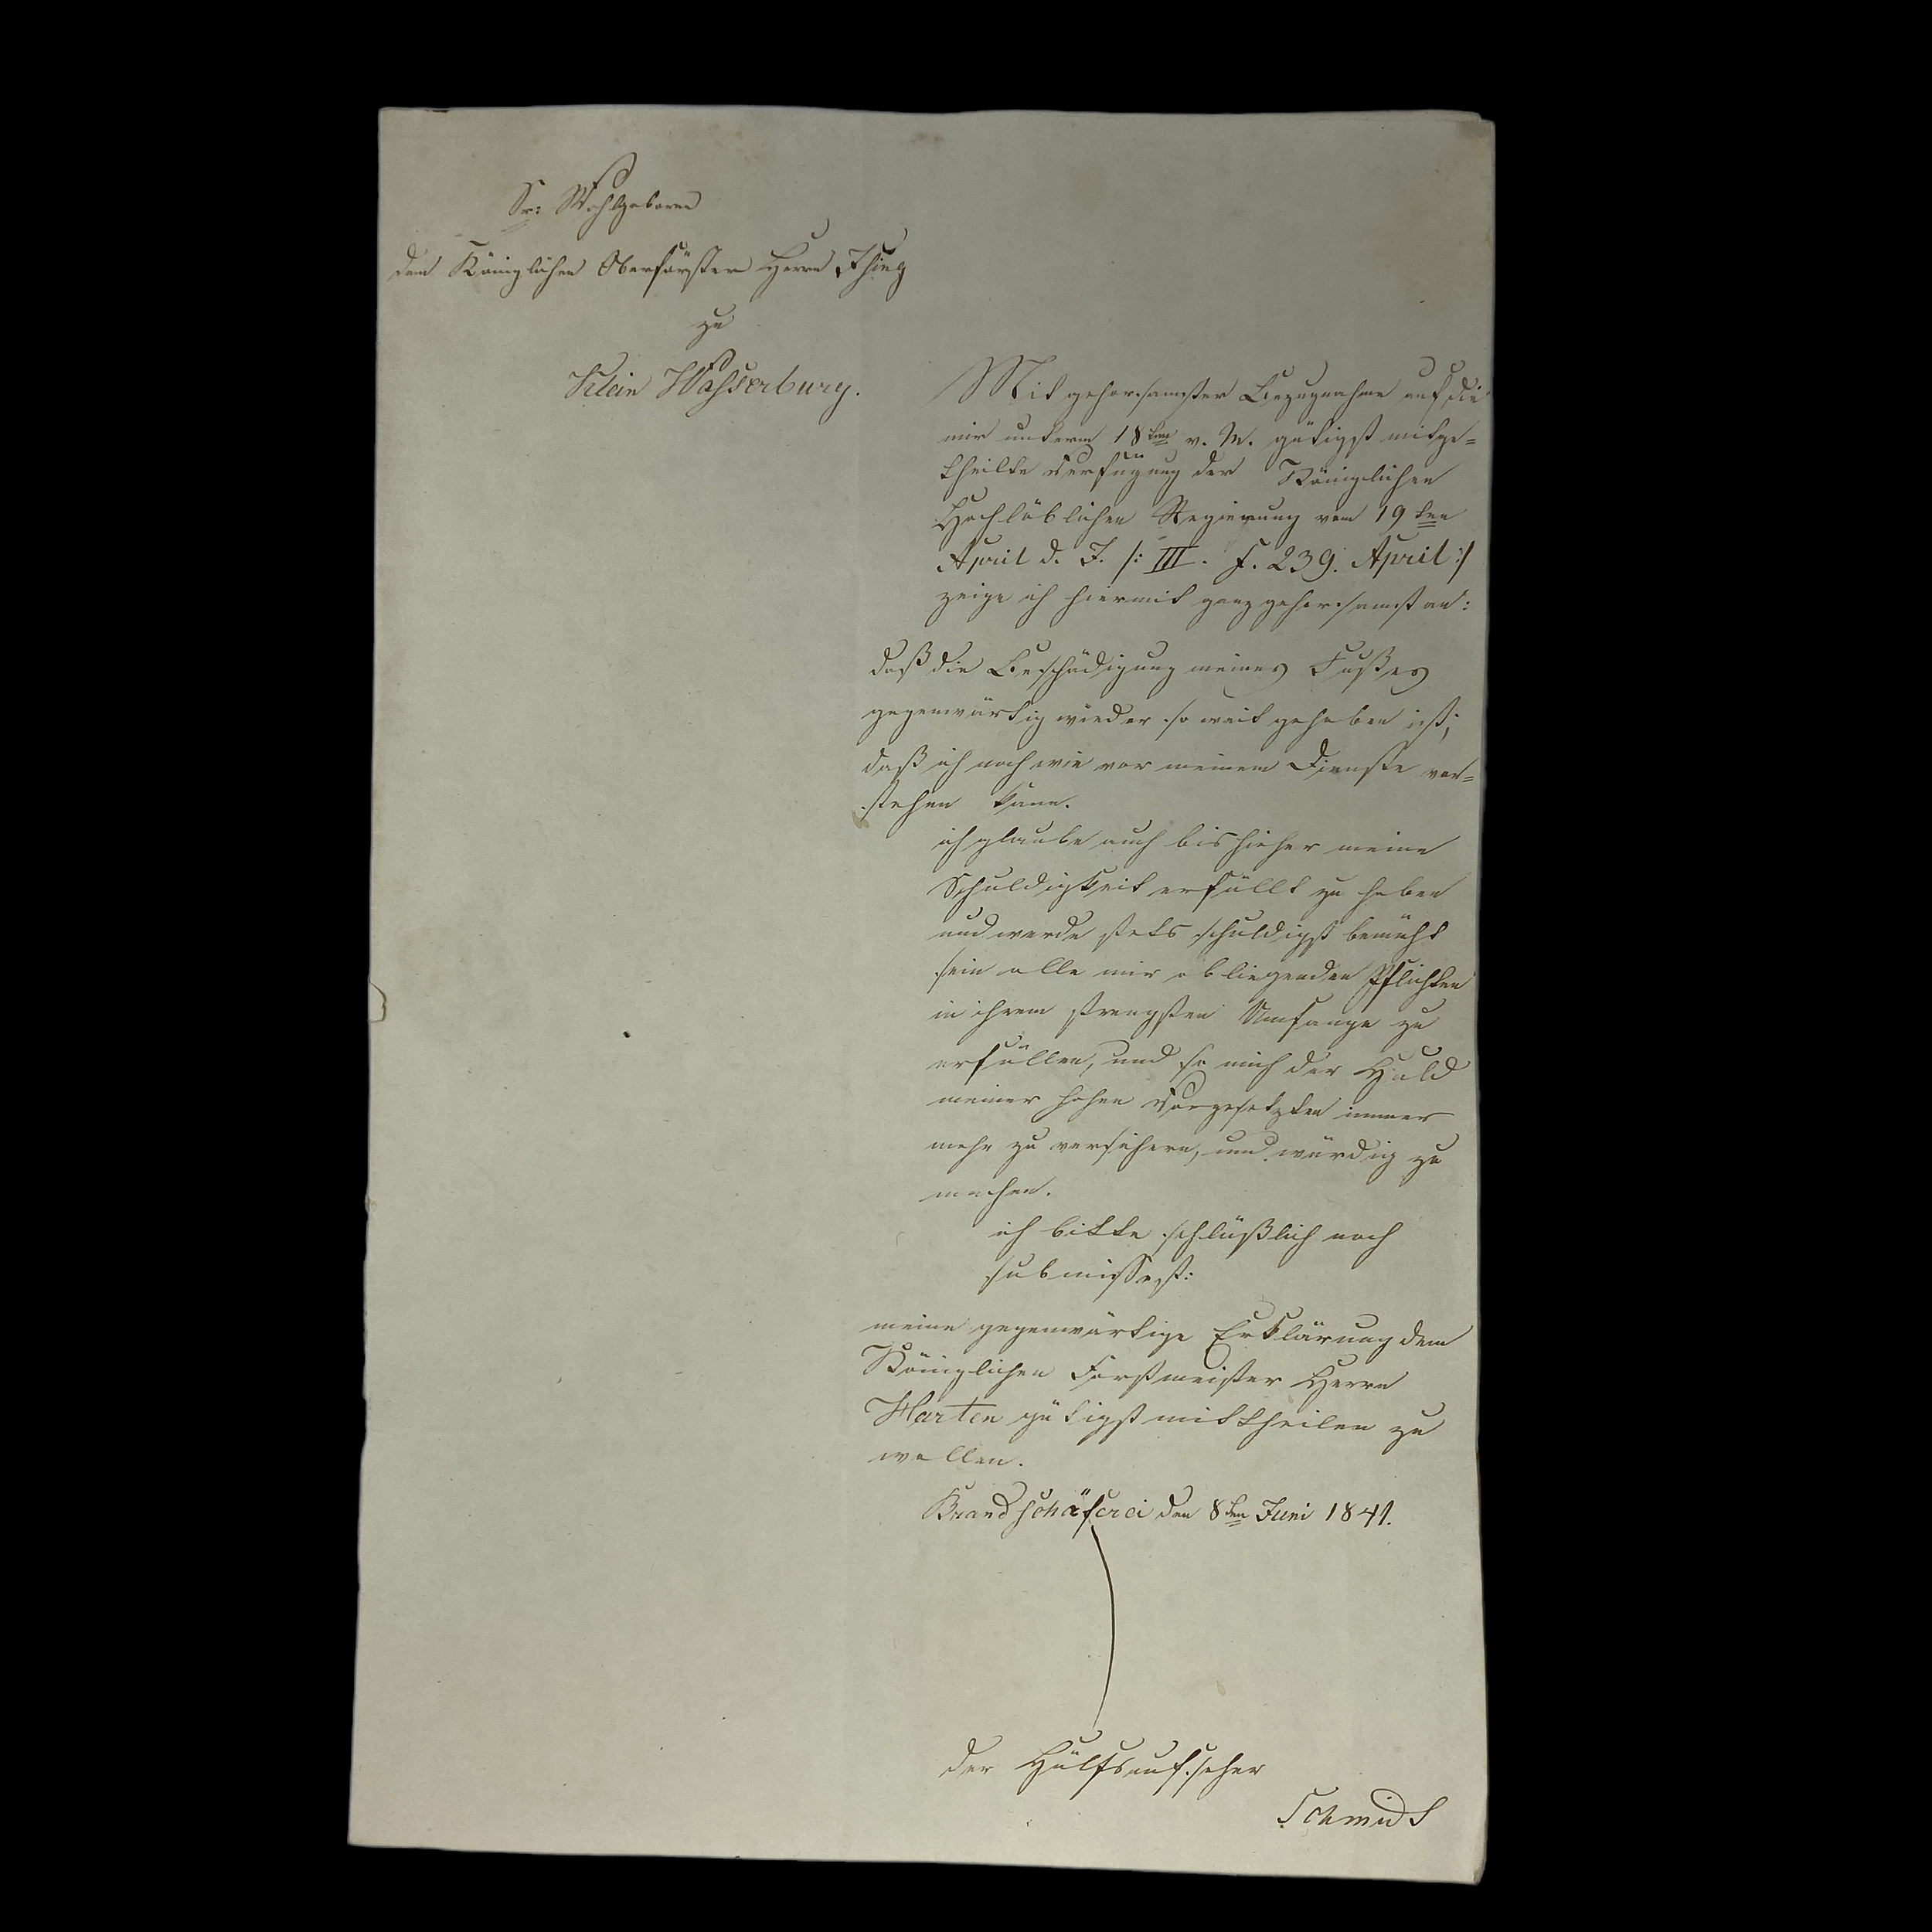 Sr: Wohlgeboren
dem Königlichen Oberförster Herrn
zu
Klein Wasserburg.
Mit gehorsamster Bezugnahme auf die
mir unterm 18ten v. M. gütigst mitge=
theilte Verfügung der Königlichen
Hochlöblichen Regierung vom 19ten
April d. J. /: III. F. 239. April :/
zeige ich hiermit ganz gehorsamst an:
daß die Beschädigung meines Fußes
gegenwärtig wieder so weit gehoben ist;
daß ich nach wie vor meinem Dienste vor=
stehen kann.
ich glaube auch bis hieher meine
Schuldigkeit erfüllt zu haben
und werde stets schuldigst bemüht
sein alle mir obliegenden Pflichten
in ihrem strengsten Umfange zu
erfüllen, und so mich der Huld
meiner hohen Vorgesetzten immer
mehr zu versichern, und würdig zu
machen.
ich bitte schlüßlich noch
submissest:
meine gegenwärtige Erklärung dem
Königlichen Forstmeister Herrn
Marten gütigst mittheilen zu
wollen.
Brandschäferei den 8ten Juni 1841.
der Hülfsaufseher
Schmidt